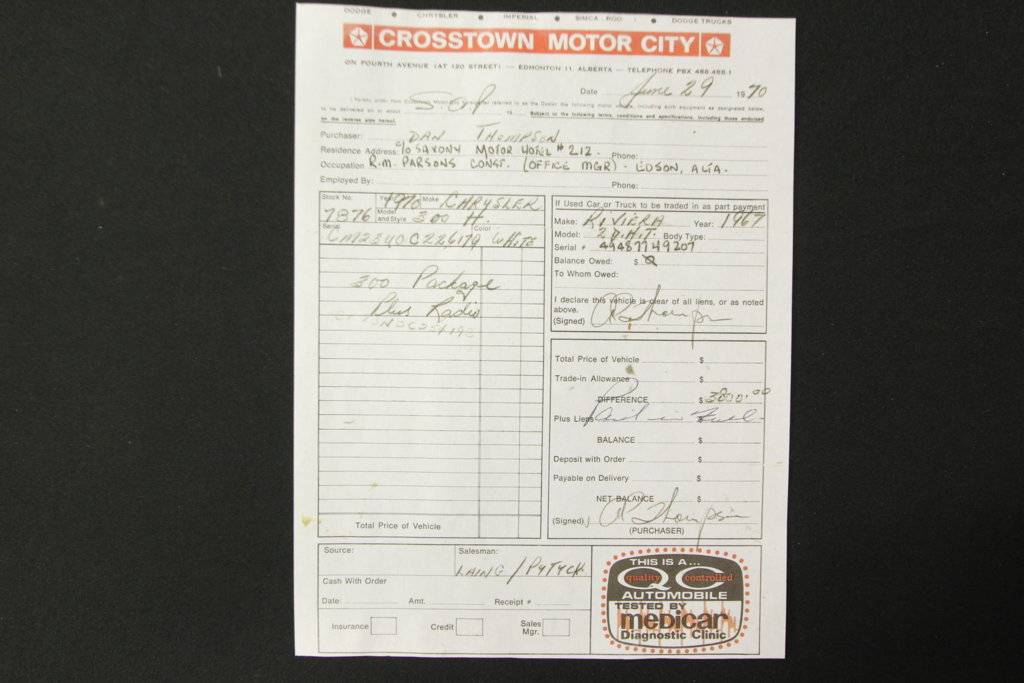 DODGE • CHRYSLER • IMPERIAL • SIMCA • DODGE TRUCKS
CROSSTOWN MOTOR CITY
ON FOURTH AVENUE (AT 120 STREET) — EDMONTON 11, ALBERTA — TELEPHONE PBX 488-488-1
Date June 29 1970
Subject to the following terms, conditions and specifications, including those endorsed
on the reverse side hereof.
Purchaser: DAN THOMPSON
Residence Address: c/o SAXONY MOTOR HOTEL #212. Phone:
Occupation R.M. PARSONS CONST. (OFFICE MGR) - EDSON, ALTA.
Employed By: Phone:
Stock No. 7876 Year 1970 Make CHRYSLER
Model and Style 300 H.
Serial CM23U0C226179 Color WHITE
300 Package
Plus Radio
Total Price of Vehicle
If Used Car or Truck to be traded in as part payment
Make: RIVIERA Year: 1967
Model: 2 D.H.T. Body Type:
Serial # 494877H9207
Balance Owed: $ 0
To Whom Owed:
I declare this vehicle is clear of all liens, or as noted
above.
(Signed)
Total Price of Vehicle $
Trade-in Allowance $
DIFFERENCE $ 3800.00
Plus Liens Paid in Full
BALANCE $
Deposit with Order $
Payable on Delivery $
NET BALANCE $
(Signed)
(PURCHASER)
Source:
Salesman: LAING / PYTYCK
Cash With Order
Date: Amt. Receipt #
Insurance Credit Sales Mgr.
THIS IS A...
QC
quality controlled
AUTOMOBILE
TESTED BY
medicar
Diagnostic Clinic